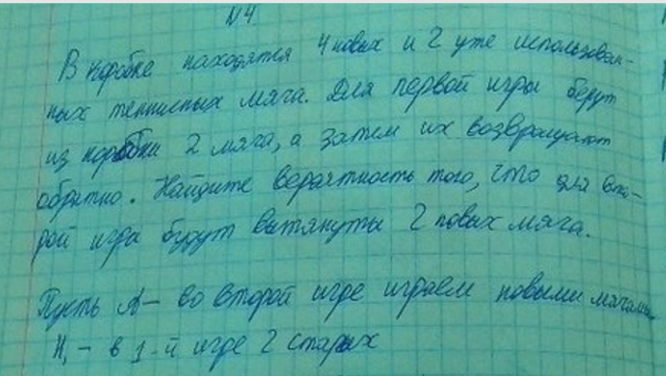 N4.
В коробке находятся 4 новых и 2 уже использован-
ных теннисных мяча. Для первой игры берут
из коробки 2 мяча, а затем их возвращают
обратно. Найдите вероятность того, что для вто-
рой игры будут вытянуты 2 новых мяча.
Пусть A – во второй игре играем новыми мячами
H₁ – в 1-й игре 2 старых